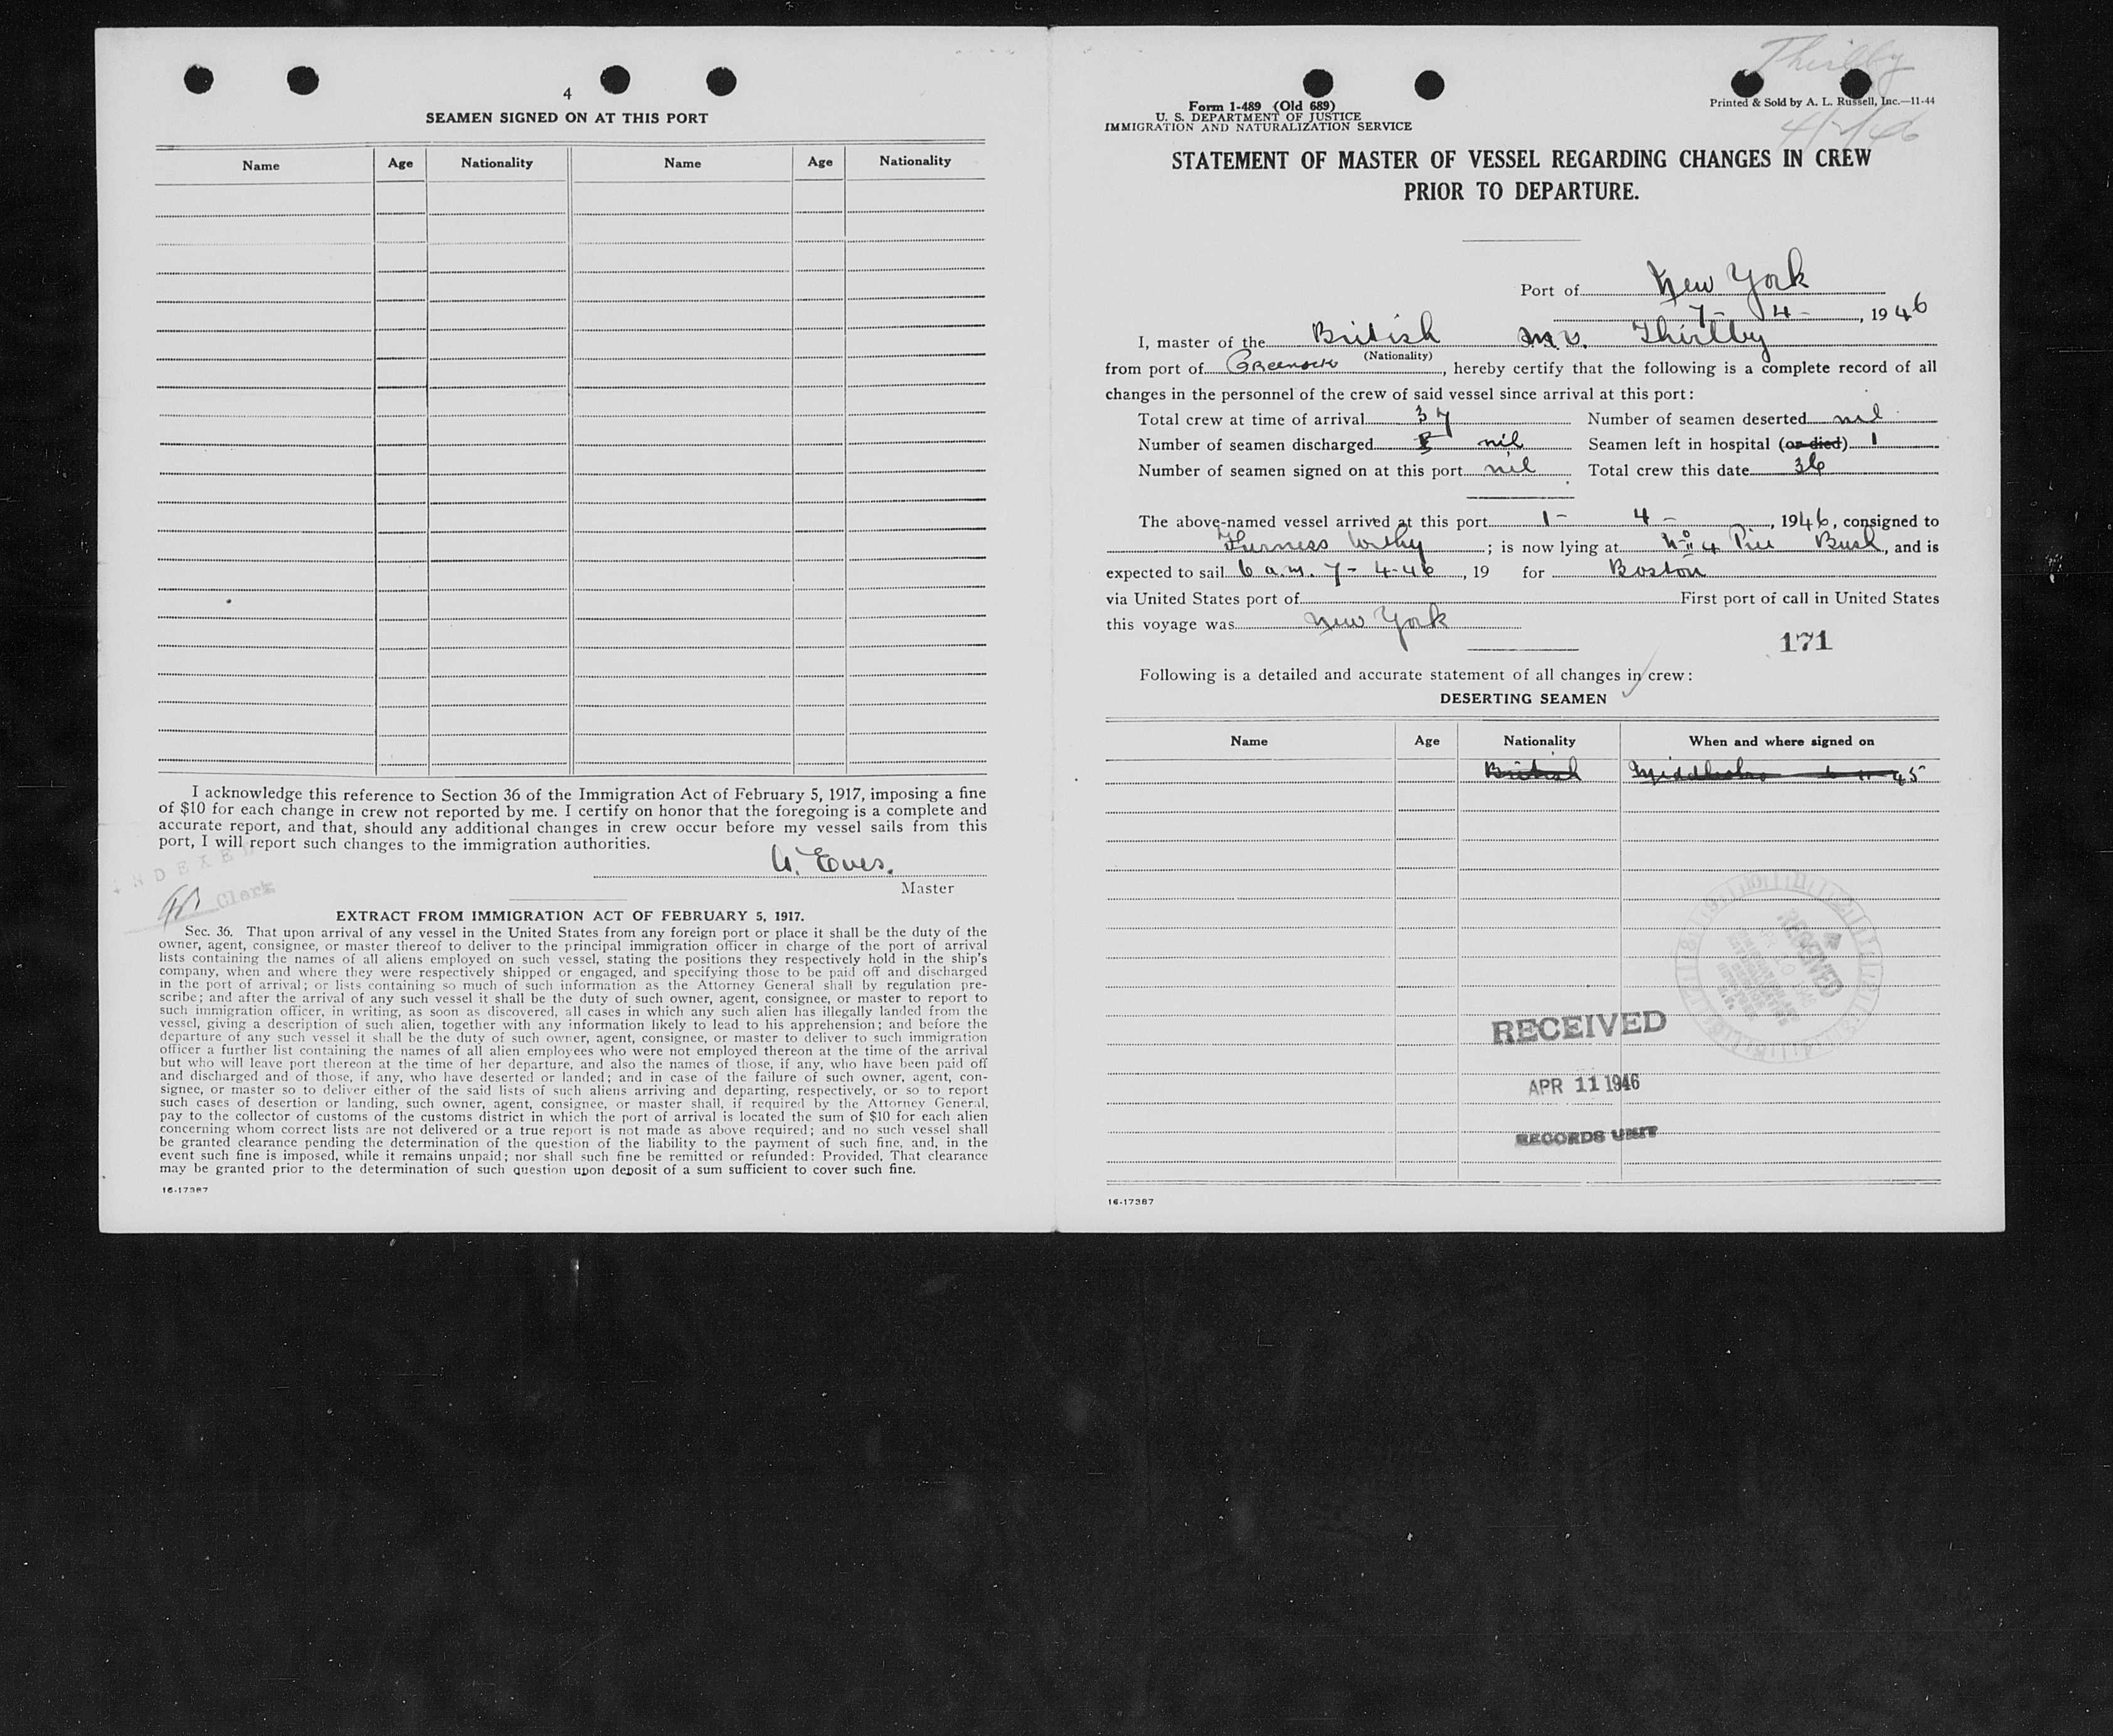 4
SEAMEN SIGNED ON AT THIS PORT
Name Age Nationality Name Age Nationality
I acknowledge this reference to Section 36 of the Immigration Act of February 5, 1917, imposing a fine
of $10 for each change in crew not reported by me. I certify on honor that the foregoing is a complete and
accurate report, and that, should any additional changes in crew occur before my vessel sails from this
port, I will report such changes to the immigration authorities.
INDEXED
Clerk
W. Eves.
Master
EXTRACT FROM IMMIGRATION ACT OF FEBRUARY 5, 1917.
Sec. 36. That upon arrival of any vessel in the United States from any foreign port or place it shall be the duty of the
owner, agent, consignee, or master thereof to deliver to the principal immigration officer in charge of the port of arrival
lists containing the names of all aliens employed on such vessel, stating the positions they respectively hold in the ship's
company, when and where they were respectively shipped or engaged, and specifying those to be paid off and discharged
in the port of arrival; or lists containing so much of such information as the Attorney General shall by regulation pre-
scribe; and after the arrival of any such vessel it shall be the duty of such owner, agent, consignee, or master to report to
such immigration officer, in writing, as soon as discovered, all cases in which any such alien has illegally landed from the
vessel, giving a description of such alien, together with any information likely to lead to his apprehension; and before the
departure of any such vessel it shall be the duty of such owner, agent, consignee, or master to deliver to such immigration
officer a further list containing the names of all alien employees who were not employed thereon at the time of the arrival
but who will leave port thereon at the time of her departure, and also the names of those, if any, who have been paid off
and discharged and of those, if any, who have deserted or landed; and in case of the failure of such owner, agent, con-
signee, or master so to deliver either of the said lists of such aliens arriving and departing, respectively, or so to report
such cases of desertion or landing, such owner, agent, consignee, or master shall, if required by the Attorney General,
pay to the collector of customs of the customs district in which the port of arrival is located the sum of $10 for each alien
concerning whom correct lists are not delivered or a true report is not made as above required; and no such vessel shall
be granted clearance pending the determination of the question of the liability to the payment of such fine, and, in the
event such fine is imposed, while it remains unpaid; nor shall such fine be remitted or refunded: Provided, That clearance
may be granted prior to the determination of such question upon deposit of a sum sufficient to cover such fine.
16-17387
Thirlby
Form 1-489 (Old 689)
U. S. DEPARTMENT OF JUSTICE
IMMIGRATION AND NATURALIZATION SERVICE
Printed & Sold by A. L. Russell, Inc.—11-44
STATEMENT OF MASTER OF VESSEL REGARDING CHANGES IN CREW
PRIOR TO DEPARTURE.
Port of New York
7- 4-, 1946
I, master of the British m.v. Thirlby
(Nationality)
from port of Greenock, hereby certify that the following is a complete record of all
changes in the personnel of the crew of said vessel since arrival at this port:
Total crew at time of arrival 37 Number of seamen deserted nil
Number of seamen discharged nil Seamen left in hospital (or died) 1
Number of seamen signed on at this port nil Total crew this date 36
The above-named vessel arrived at this port 1- 4-, 1946, consigned to
Furness Withy; is now lying at No 4 Pier Bush, and is
expected to sail 6 a.m. 7-4-46, 19 for Boston
via United States port of First port of call in United States
this voyage was New York
171
Following is a detailed and accurate statement of all changes in crew:
DESERTING SEAMEN
Name Age Nationality When and where signed on
British 45
RECEIVED
RECEIVED
APR 11 1946
RECORDS UNIT
16-17387